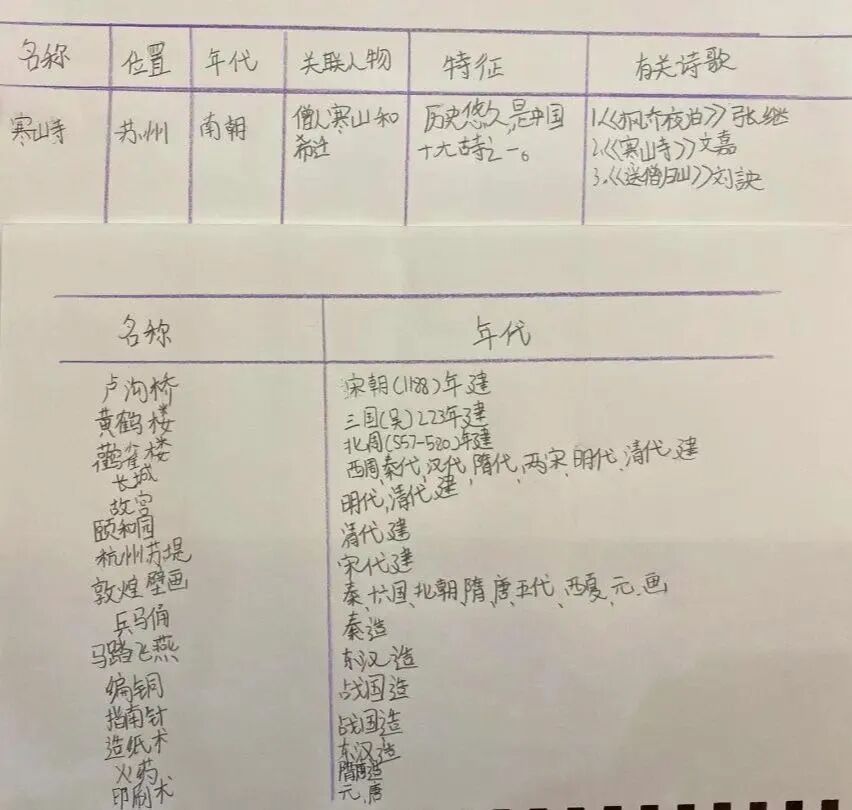 名称 位置 年代 关联人物 特征 有关诗歌
寒山寺 苏州 南朝 僧人寒山和 历史悠久,是中国 1.《枫乔夜泊》张继
希迁 十大古寺之一。 2.《寒山寺》文嘉
3.《送僧归山》刘訣
名称 年代
卢沟桥 宋朝(1188)年建
黄鹤楼 三国(吴)223年建
鹳雀楼 北周(557-580)年建
长城 西周,秦代,汉代,隋代,两宋,明代,清代建
故宫 明代,清代建
颐和园 清代建
杭州苏堤 宋代建
敦煌壁画 秦、十六国、北朝、隋、唐、五代、西夏、元、画
兵马俑 秦造
马踏飞燕 东汉造
编铜 战国造
指南针 战国造
造纸术 东汉造
火药 隋唐造
印刷术 元、唐